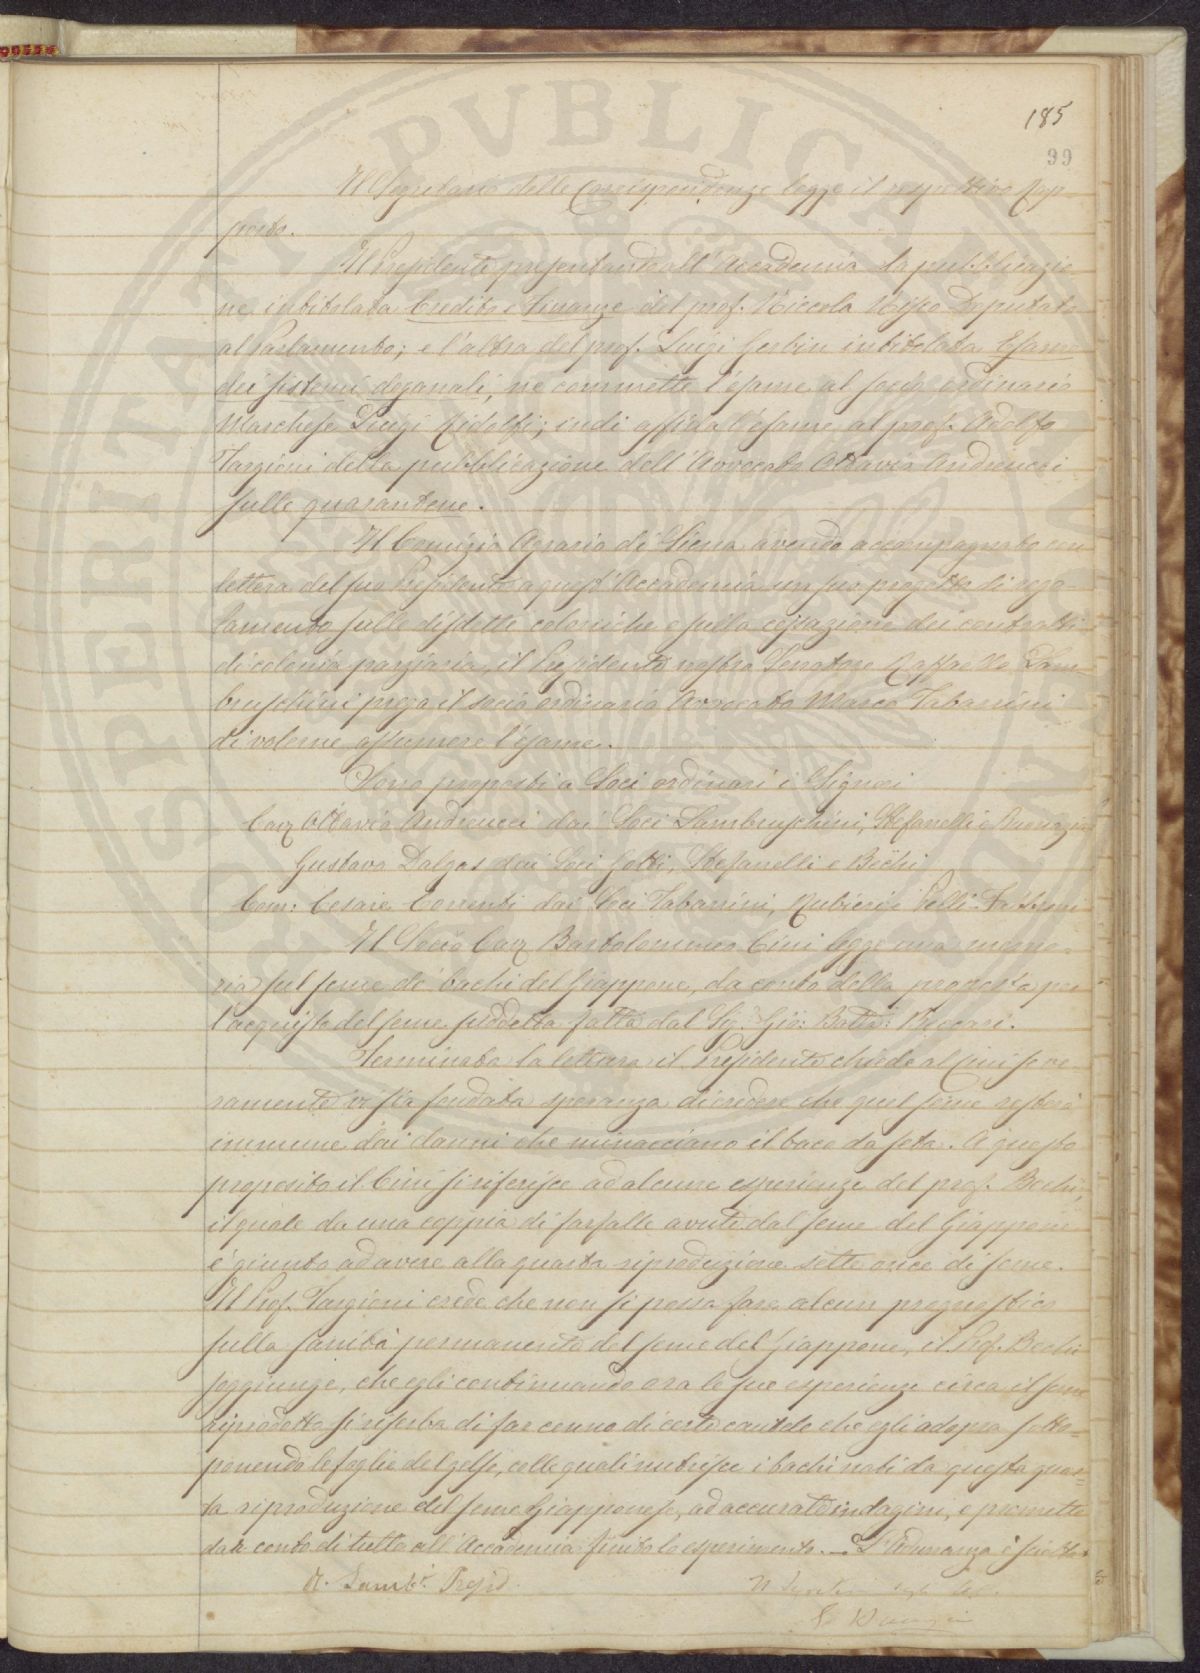 185
99
Il Segretario delle Corrispondenze legge il respettivo Rap-
porto.
Il Presidente presentando all'Accademia la pubblicazio
ne intitolata Credito e Finanze del prof. Niccola Nisco Deputato
al Parlamento; e l'altra del prof. Luigi Gerbin intitolata Esame
dei sistemi doganali, ne commette l'esame al socio ordinario
Marchese Luigi Ridolfi; indi affida l'esame al prof. Adolfo
Targioni della pubblicazione dell'Avvocato Ottavio Andreucci
sulle quarantene.
Il Comizio Agrario di Siena avendo accompagnato con
lettera del suo Presidente a quest'Accademia un suo progetto di rego-
lamento sulle disdette coloniche e sulla cessazione dei contratti
di colonia parziaria, il Presidente nostro Senatore Raffaello Lam-
bruschini prega il socio ordinario Avvocato Marco Tabarrini
di volerne assumere l'esame.
Sono proposti a Soci ordinari i Signori
Cav Ottavio Andreucci dai Soci Lambruschini, Stefanelli e
Gustavo Dalgas dai Soci Gotti, Stefanelli e Bechi
Com: Cesare Correnti dai Soci Tabarrini, Rubieri e Pelli-Fabbroni
Il Socio Cav Bartolommeo Cini legge una memo-
ria sul seme de' bachi del Giappone, da conto della proposta per
l'acquisto del seme suddetto fatta dal Sig: Gio: Batta:
Terminata la lettura il Presidente chiede al Cini se ve-
ramente vi sia fondata speranza di credere che quel seme resterà
immune dai danni che minacciano il baco da seta. A questo
proposito il Cini si riferisce ad alcune esperienze del prof. Bechi,
il quale da una coppia di farfalle avute dal seme del Giappone
é giunto ad avere alla quarta riproduzione sette once di seme.
Il Prof. Targioni crede che non si possa fare alcun prognostico
sulla sanità permanente del seme del Giappone, il Prof. Bechi
soggiunge, che egli continuando ora le sue esperienze circa il seme
riprodotto si riserba di far cenno di certe cautele che egli adopra sotto=
ponendo le foglie del gelso, colle quali nutrisce i bachi nati da questa quar=
ta riproduzione del seme Giapponese, ad accurate indagini, e promette
dar conto di tutto all'Accademia finito lo esperimento. — L'Adunanza è sciolta.
R. Lamb.i Presid.
Il